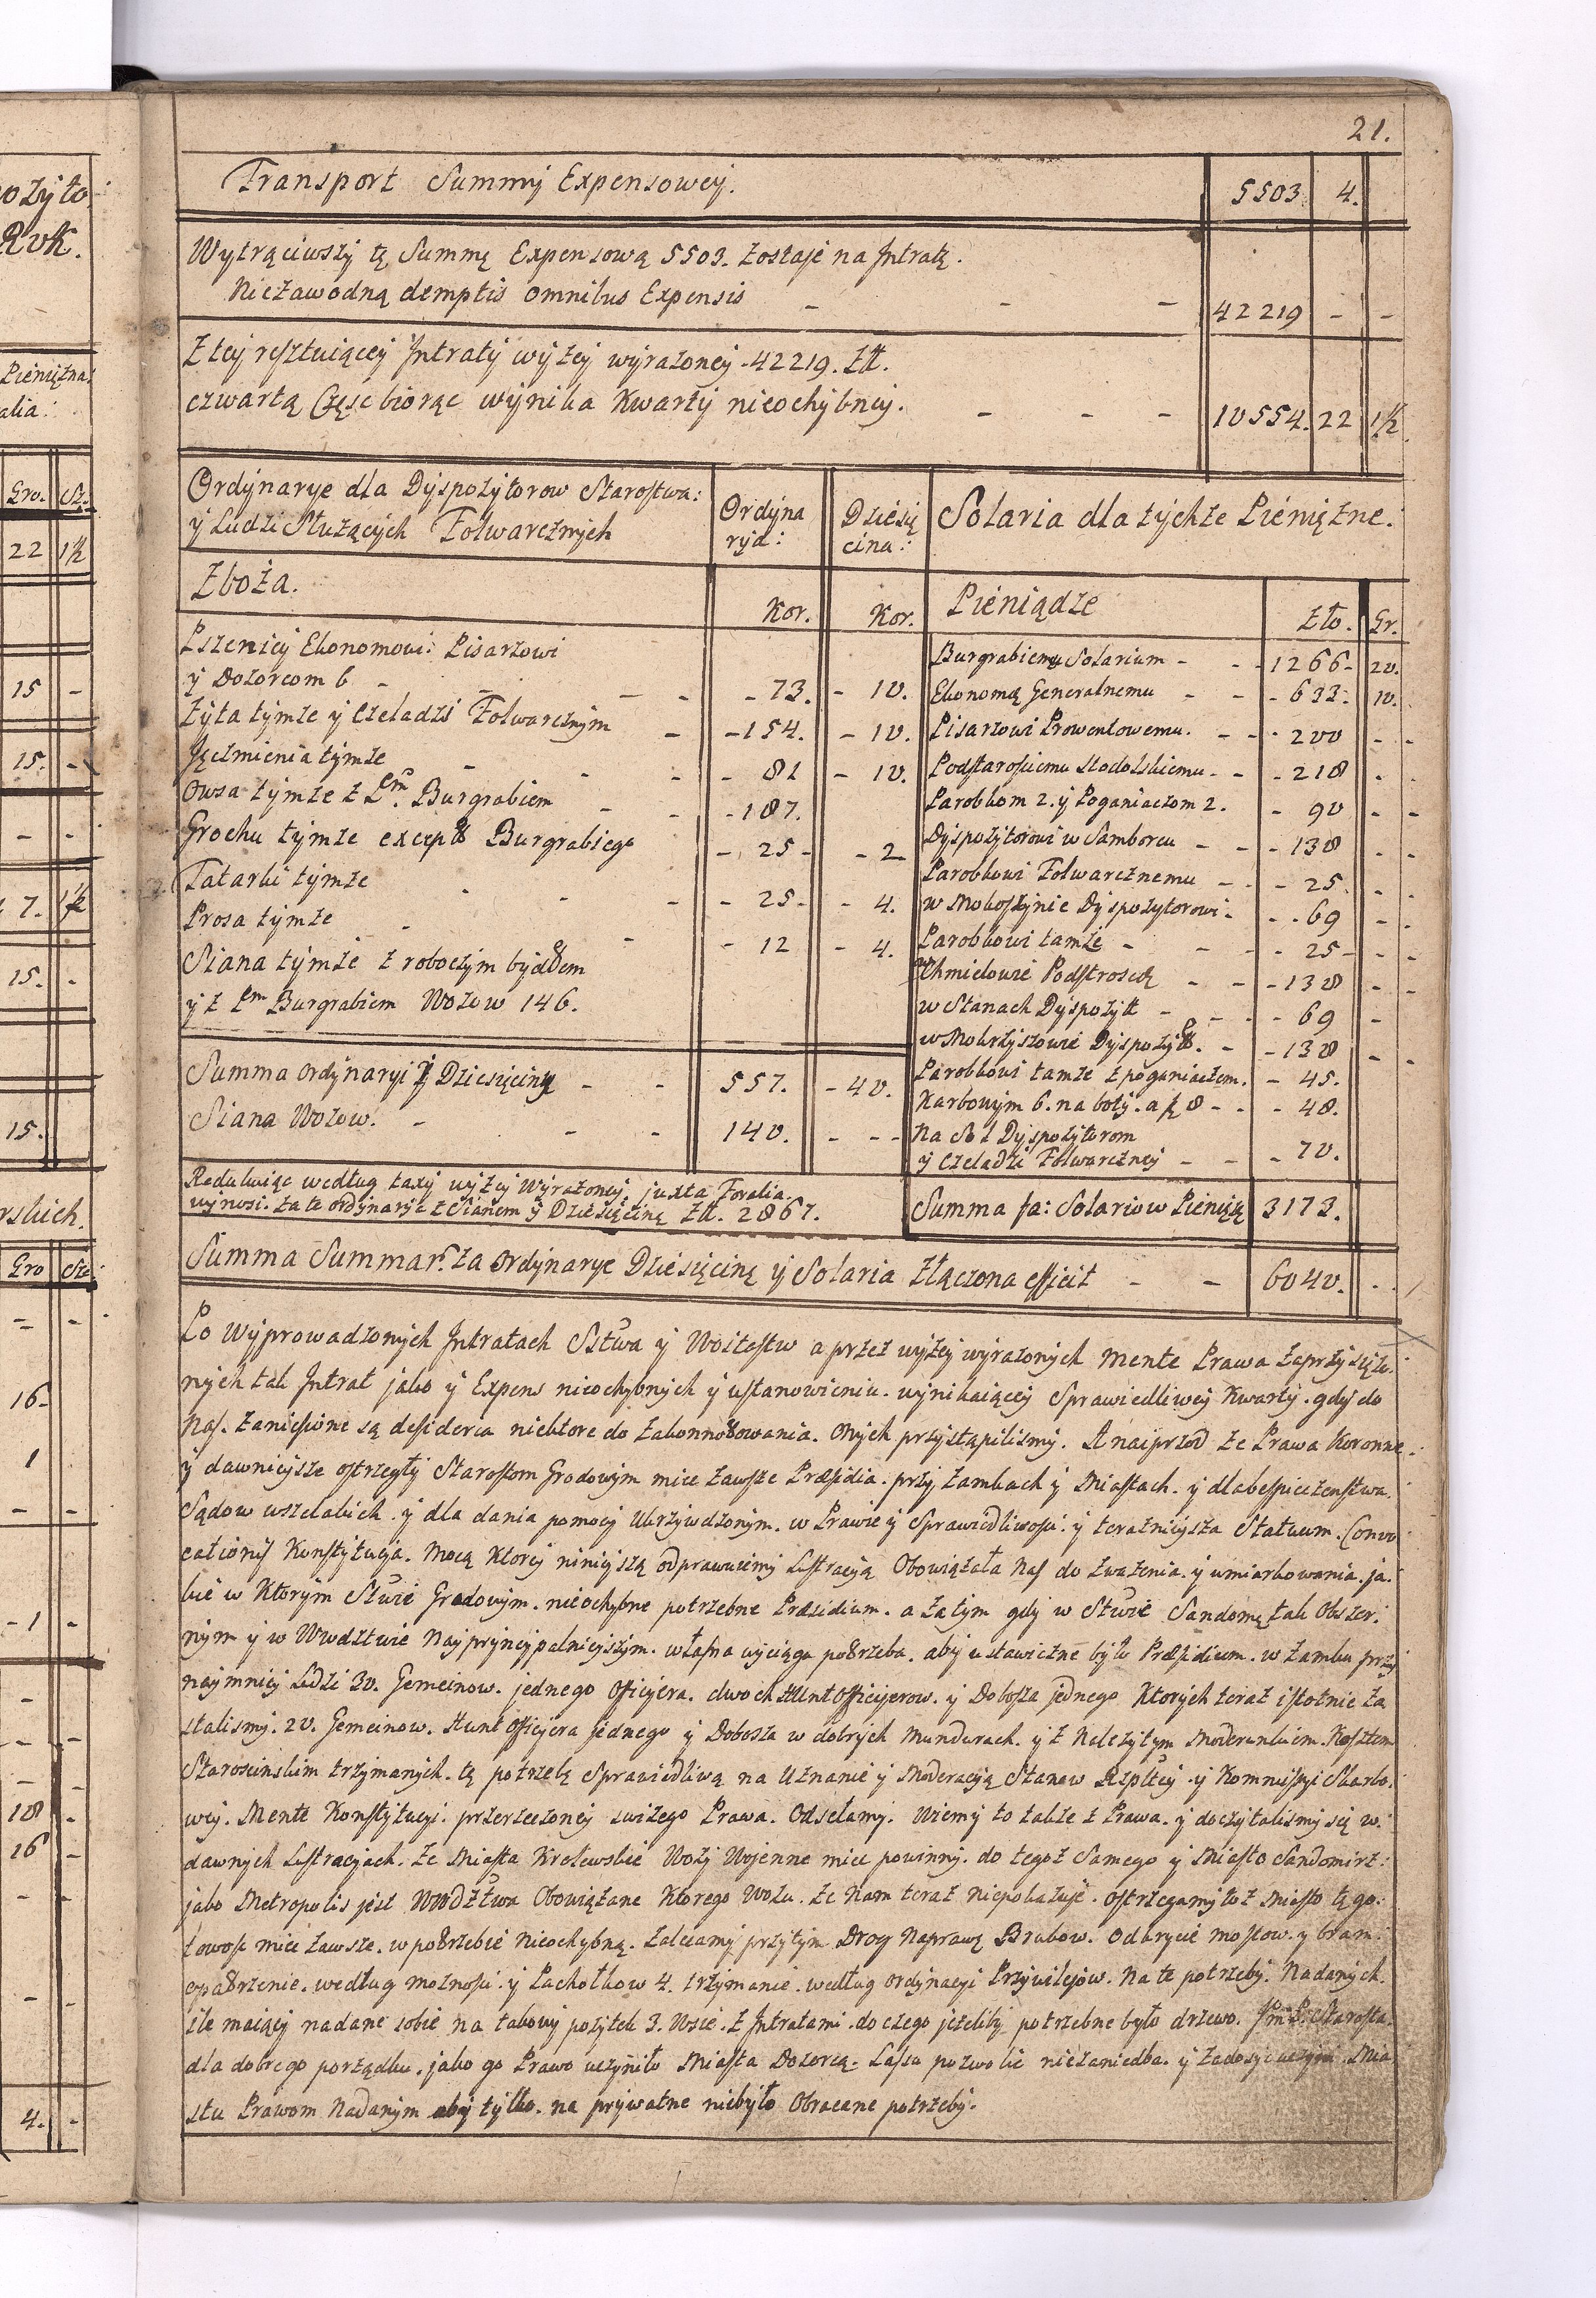 21.
Transport Summy Expensowey. 5503 4.
Wytrąciwszy tę Summę Expensową 5503. zostaje na Jntratę.
Niezawodną demptis omnibus Expensis - - - 42219 - -
Z tey resztuiącey Jntraty wyżey wyrażoney 42219. Złł.
czwartą Część biorąc wynika Kwarty nieochybney. - - - 10554. 22 1½.
Ordynarye dla Dyspozytorow Starostwa:
y Ludzi Służących Folwarcznych
Ordyna
rya:
Dziesię
cina:
Solaria dla tychże Pieniężne.
Zboża. Kor. Kor. Pieniądze Zło. Gr.
Pszenicy Ekonomowi: Pisarzowi
y Dozorcom 6 - - - - 73. - 10.
Żyta tymże y Czeladzi Folwarcznym - - 154. - 10.
Jęczmienia tymże - - - - 81 - 10.
Owsa tymże z Pm. Burgrabiem - - - 187.
Grochu tymże except Burgrabiego - 25 - - 2
Tatarki tymże - - - - 25 - - 4.
Prosa tymże - - - 12 - 4.
Siana tymże z roboczym bydłem
y z Pm Burgrabiem Wozow 146.
Summa Ordynaryi y Dziesięciny - - 557. - 40.
Siana Wozow. - - - 140. - - -
Redukuiąc według taxy wyżey wyrażoney, juxta Foralia.
wynosi. za te ordynarye z Sianem y Dziesięciną Złł. 2867.
Burgrabiemu Solarium - - - 1266 - 20.
Ekonomą Generalnemu - - - 633. 10.
Pisarzowi Prowentowemu. - - - 200 - -
Podstarościemu Stodolskiemu - - - 218 - -
Parobkom 2. y Poganiaczom 2. - 90 - -
Dyspozytorowi w Samborcu - - - 138 - -
Parobkowi Folwarcznemu - - - 25 - -
w Mokoszynie Dyspozytorowi - - - 69 - -
Parobkowi tamże - - - 25 - - -
w Chmielowie Podstrosczę - - - 138 - -
w Stanach Dyspozytt - - - - 69 -
w Mokrzyszowie Dyspozyt. - - 138 - -
Parobkowi tamże z poganiaczem. - 45.
Karbowym 6. na boty. a zł 8 - - - 48.
Na Sól Dyspozytorom
y Czeladzi Folwarczney - - - 70.
Summa fa: Solariow Pienięż 3173.
Summa Summar. za Ordynarye Dziesięcinę y Solaria złączona efficit - - 6040. - -
Po Wyprowadzonych Jntratach Sstwa y Woitostw a przez wyżey wyrażonych mente Prawa zaprzysiężo-
nych tak Jntrat jako y Expens nieochybnych y ustanowieniu. wynikaiącey Sprawiedliwey Kwarty. gdy do
Nas. zaniesione są desideria niektore do zakonnotowania. Onych przystąpilismy. A naiprzod że Prawa Koronne
y dawnieysze ostrzegły Starostom Grodowym miec zawsze Præsidia. przy zamkach y Miastach. y dla bespieczenstwa.
Sądow wszelakich. y dla dania pomocy Ukrzywdzonym. w Prawie y Sprawiedliwosci. y teraznieysza Statuum. Convo
cationis Konstytucya. Mocą Ktorey ninieyszą odprawuiemy Lustracyą Obowiązała nas do zważenia. y umiarkowania. ja.
kie w Ktorym Stwie Grodowym. nieochybne potrzebne Præsidium. a zatym gdy w Stwie Sandomę tak Obszer-
nym y w Wwdztwie Nayprincypalnieyszym. własna wyciąga potrzeba. aby ustawiczne było Præsidium. w zamku przy
naymniey Ludzi 30. Gemeinow. jednego Officyera. dwoch Untofficyerow. y Dobosza jednego Ktorych teraz istotnie za
stalismy. 20. Gemeinow. Unt officyera jednego y Dobosza w dobrych Mundurach. y z Należytym Moderunkiem. Kosztem
Staroscinskim trzymanych. tę potrzebę Sprawiedliwą na Uznanie y Moderacyą Stanow Rzpltey. y Kommissyi Skarbo.
wey. Mente Konstytucyi. przerzeczoney swiżego Prawa. Odsełamy. Wiemy to także z Prawa. y doczytalismy się w.
dawnych Lustracyach. że Miasta Krolewskie Wozy Wojenne miec powinny. do tegoż Samego y Miasto Sandomirz:
jako Metropolis jest Wwdztwa Obowiązane Ktorego Wozu. że Nam teraz niepokazuje. ostrzegamy toż Miasto tę go:
towość miec zawsze. w potrzebie nieochybną. Zalecamy przytym Drog Naprawę Brukow. Odkrycie mostow. y bram.
opatrzenie. według możnosci. y Pachołkow 4. trzymanie. według Ordynacyi Przywilejow. Na te potrzeby. Nadanych.
ile maiący nadane sobie na takowy pożytek 3. Wsie. z Jntratami. do czego jeżeliby potrzebne było drzewo. Jm P. Starosta.
dla dobrego porządku. jako go Prawo uczyniło Miasta Dozorcą. Lasu pozwolić niezaniedba. y zadosyć uczyni Mia
stu Prawom Nadanym aby tylko. na prywatne niebyło Obracane potrzeby.